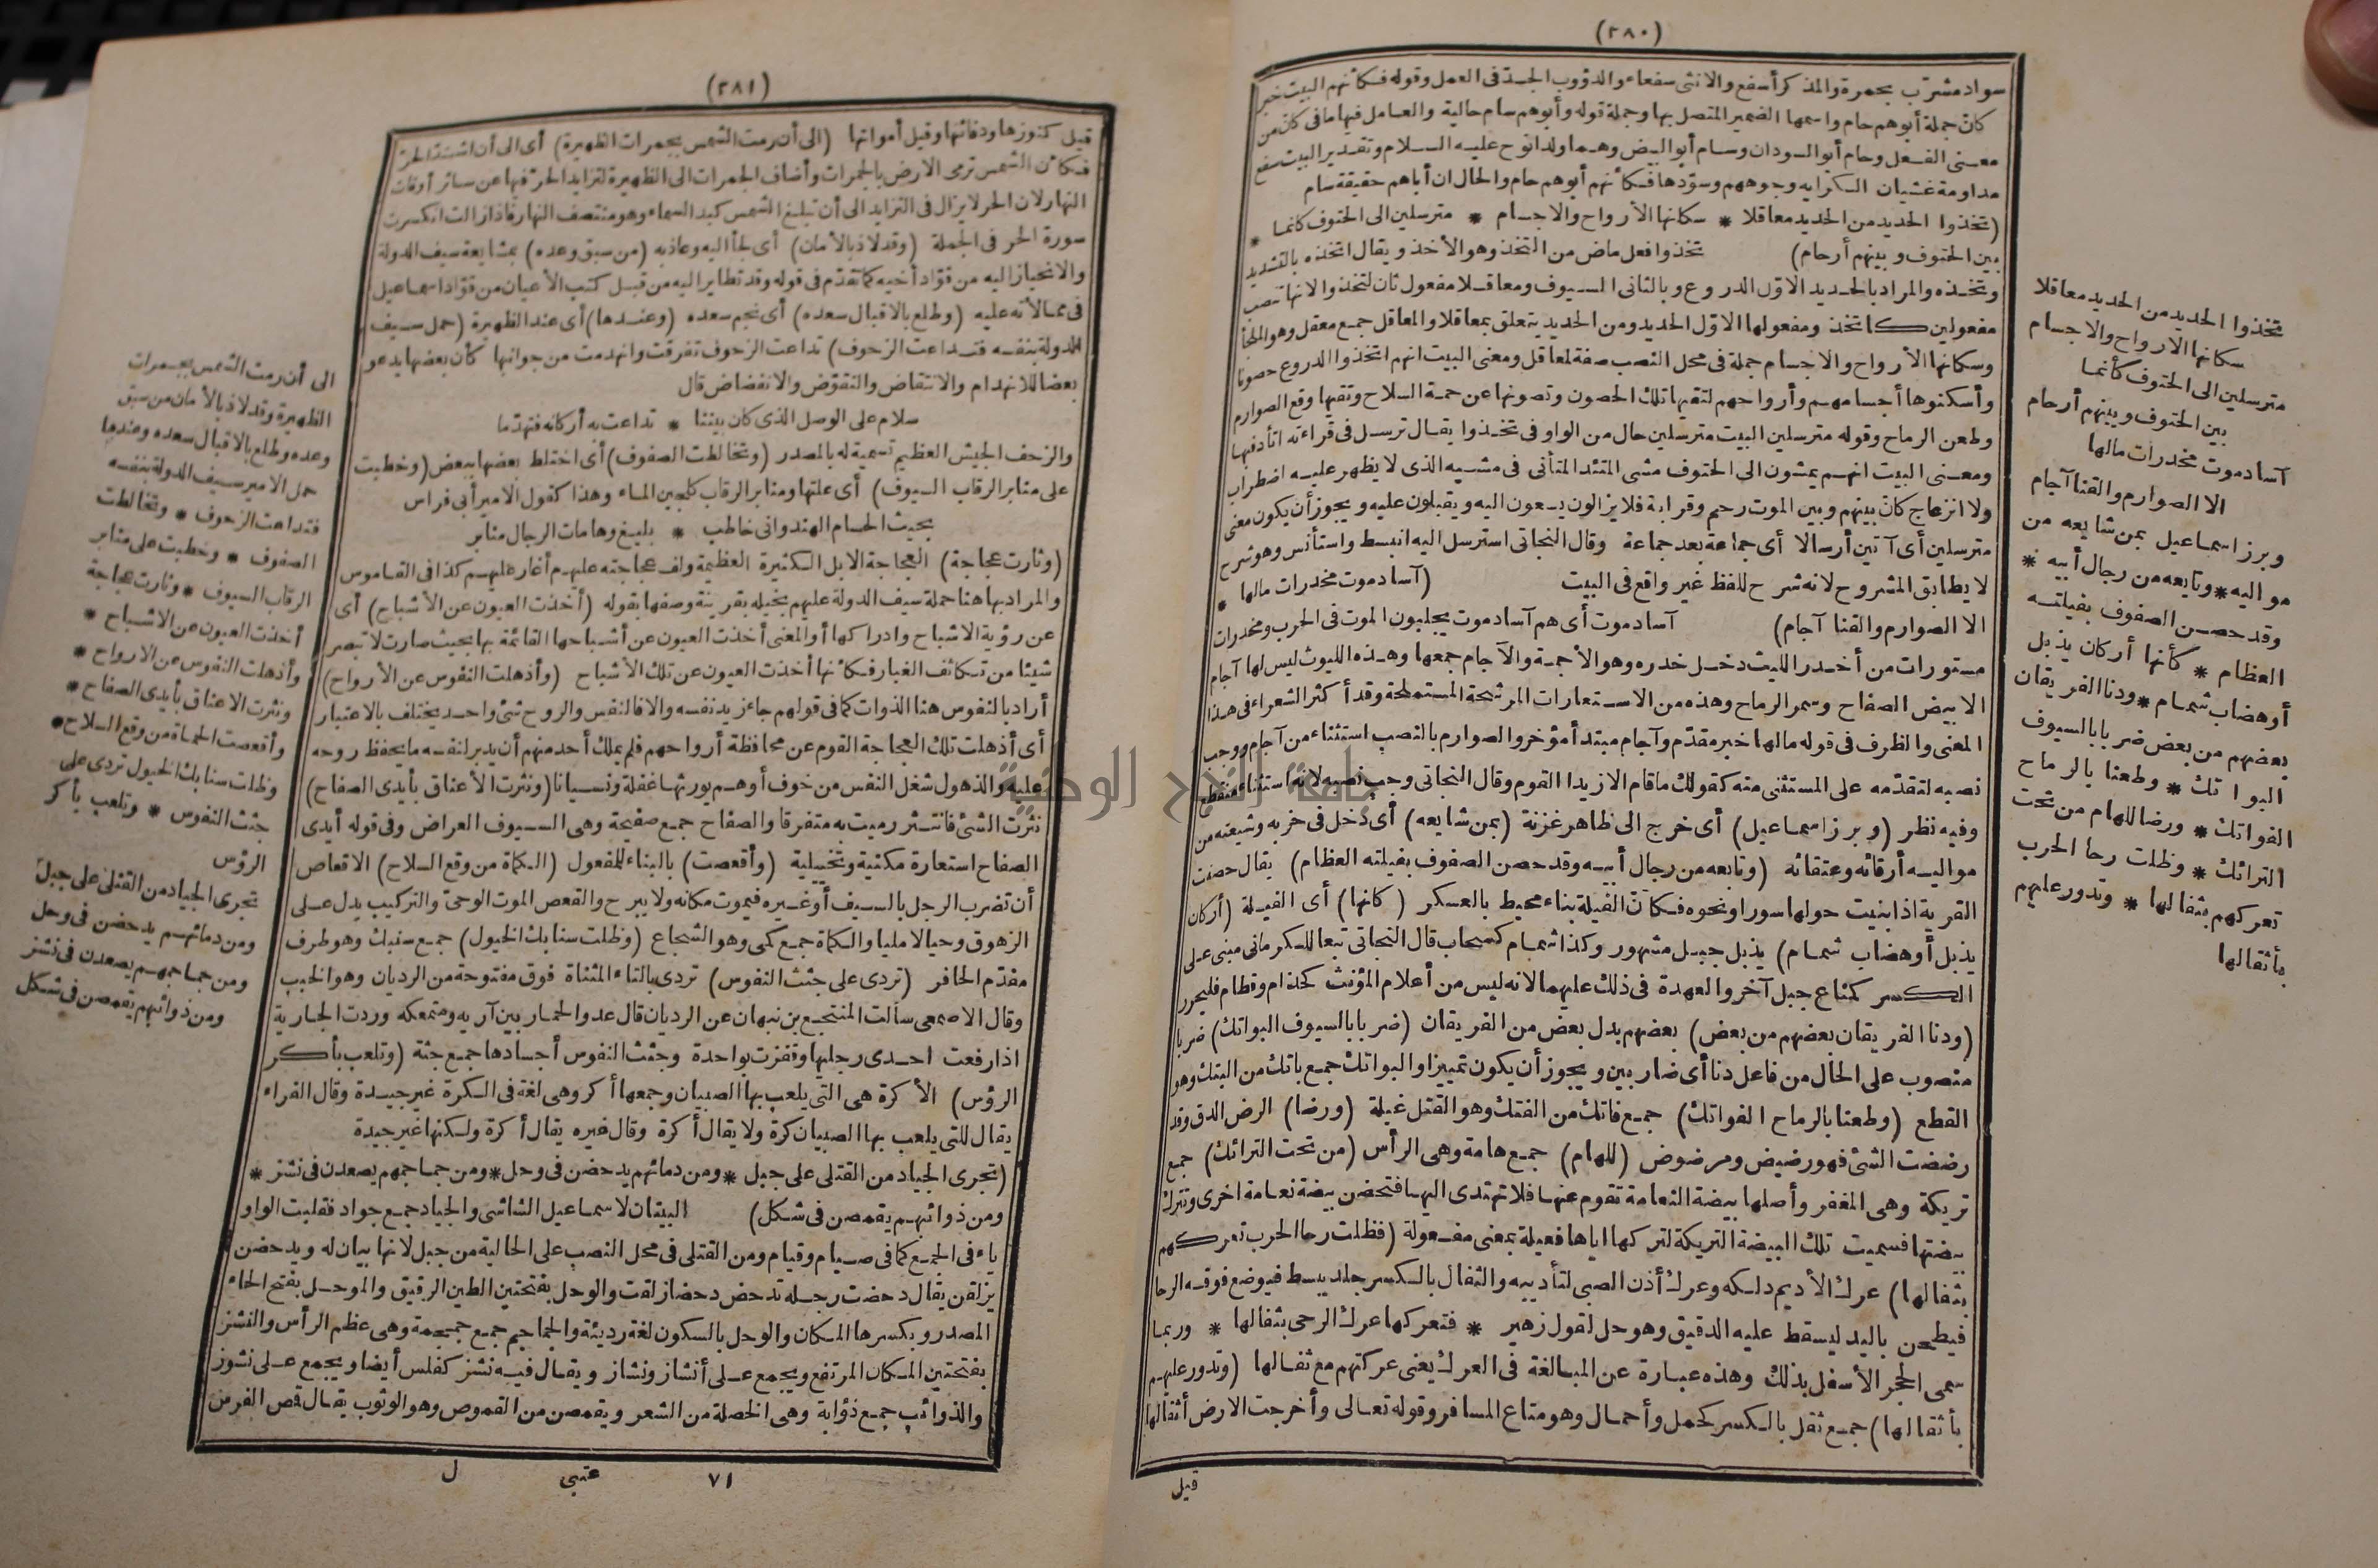 (٢٨٠)
سواد مشرّب بحمرة والمذكر أسفع والانثى سفعاء والدؤوب الجدّ فى العمل وقوله فكأنهم البيت خبر
كانّ جملة أبوهم حام واسمها الضمير المتصل بها وجملة قوله وأبوهم سام حالية والعامل فيها ما فى كانّ من
معنى الفعل وحام أبو السودان وسام أبو البيض وهما ولدا نوح عليه السلام وتقدير البيت سفع
مداومة غشيان الكرايه وجوههم وسوّدها فكأنهم أبوهم حام والحال ان أباهم حقيقة سام
(تخذوا الحديد من الحديد معاقلا * سكانها الأرواح والاجسام * مترسلين الى الحتوف كانما *
بين الحتوف وبينهم أرحام) تخذوا فعل ماض من التخذ وهو الأخذ ويقال اتخذه بالتشديد
وتخذه والمراد بالحديد الاوّل الدروع وبالثانى السيوف ومعاقلا مفعول ثان لتخذوا لانها تنصب
مفعولين كاتخذ ومفعولها الاوّل الحديد ومن الحديد يتعلق بمعاقلا والمعاقل جمع معقل وهو الملجأ
وسكانها الأرواح والاجسام جملة فى محل النصب صفة لمعاقل ومعنى البيت انهم اتخذوا الدروع حصونا
وأسكنوها أجسامهم وأرواحهم لتقيها تلك الحصون وتصونها عن حمة السلاح وتقيها وقع الصوارم
وطعن الرماح وقوله مترسلين البيت مترسلين حال من الواو فى تخذوا يقال ترسل فى قراءته اتأد فيها
ومعنى البيت انهم يمشون الى الحتوف مشى المتئد المتأنى فى مشيه الذى لا يظهر عليه اضطراب
ولا انزعاج كانّ بينهم وبين الموت رحم وقرابة فلا يزالون يسعون اليه ويقبلون عليه ويجوز أن يكون معنى
مترسلين أى آتين أرسالا أى جماعة بعد جماعة وقال النجاتى استرسل اليه انبسط واستأنس وهو شرح
لا يطابق المشروح لانه شرح للفظ غير واقع فى البيت (آساد موت مخدرات مالها *
الا الصوارم والقنا آجام) آساد موت أى هم آساد موت يجلبون الموت فى الحرب ومخدرات
مستورات من أخدر الليث دخل خدره وهو الأجمة والآجام جمعها وهذه الليوث ليس لها آجام
الا بيض الصفاح وسمر الرماح وهذه من الاستعارات المرشحة المستملحة وقد أكثر الشعراء فى هذا
المعنى والظرف فى قوله مالها خبر مقدّم وآجام مبتدأ مؤخر والصوارم بالنصب استثناء من آجام ووجب
نصبه لتقدّمه على المستثنى منه كقولك ما قام الا زيدا القوم وقال النجاتى وجب نصبه لانه استثناء منقطع
وفيه نظر (وبرز اسماعيل) أى خرج الى ظاهر غزنة (بمن شايعه) أى دخل فى حزبه وشيعته من
مواليه أرقائه وعتقائه (وتابعه من رجال أبيه وقد حصن الصفوف بفيلته العظام) يقال حصنت
القرية اذا بنيت حولها سورا ونحوه فكانّ الفيلة بناء محيط بالعسكر (كانها) أى الفيلة (أركان
يذبل أو هضاب شمام) يذبل جبل مشهور وكذا شمام كسحاب قال النجاتى تبعا للكرمانى مبنى على
الكسر كمناع جبل آخر والعهدة فى ذلك عليهما لانه ليس من أعلام المؤنث كحذام وقطام فليحرر
(ودنا الفريقان بعضهم من بعض) بعضهم بدل بعض من الفريقان (ضربا بالسيوف البواتك) ضربا
منصوب على الحال من فاعل دنا أى ضاربين ويجوز أن يكون تمييزا والبواتك جمع باتك من البتك وهو
القطع (وطعنا بالرماح الفواتك) جمع فاتك من الفتك وهو القتل غيلة (ورضا) الرض الدق وقد
رضضت الشئ فهو رضيض ومرضوض (للهام) جمع هامة وهى الرأس (من تحت الترائك) جمع
تريكة وهى المغفر وأصلها بيضة النعامة تقوم عنها فلا تهتدى اليها فتحضن بيضة نعامة اخرى وتترك
بيضتها فسميت تلك البيضة التريكة لتركها اياها فعيلة بمعنى مفعولة (فظلت رحا الحرب تعركهم
بثفالها) عرك الأديم دلكه وعرك أذن الصبى لتأديبه والثفال بالكسر جلد يبسط فيوضع فوقه الرحا
فيطحن باليد ليسقط عليه الدقيق وهو حل لقول زهير * فتعركها عرك الرحى بثفالها * وربما
سمى الحجر الأسفل بذلك وهذه عبارة عن المبالغة فى العرك يعنى عركتهم مع ثفالها (وتدور عليهم
بأثقالها) جمع ثقل بالكسر كحمل وأحمال وهو متاع المسافر وقوله تعالى وأخرجت الارض أثقالها
قيل
تخذوا الحديد من الحديد معاقلا
سكانها الارواح والاجسام
مترسلين الى الحتوف كأنما
بين الحتوف وبينهم أرحام
آساد موت مخدرات مالها
الا الصوارم والقنا آجام
وبرز اسماعيل بمن شايعه من
مواليه * وتابعه من رجال أبيه *
وقد حصن الصفوف بفيلته
العظام * كأنها أركان يذبل
أو هضاب شمام * ودنا الفريقان
بعضهم من بعض ضربا بالسيوف
البواتك * وطعنا بالرماح
الفواتك * ورضا للهام من تحت
الترائك * وظلت رحا الحرب
تعركهم بثفالها * وتدور عليهم
بأثقالها
(٢٨١)
قيل كنوزها ودفائنها وقيل أمواتها (الى أن رمت الشمس بجمرات الظهيرة) أى الى أن اشتدّ الحرّ
فكأن الشمس ترمى الارض بالجمرات وأضاف الجمرات الى الظهيرة لتزايد الحرّ فيها عن سائر أوقات
النهار لان الحر لا يزال فى التزايد الى أن تبلغ الشمس كبد السماء وهو منتصف النهار فاذا زالت انكسرت
سورة الحر فى الجملة (وقد لاذ بالأمان) أى لجأ اليه وعاذ به (من سبق وعده) بمشايعة سيف الدولة
والانحياز اليه من قوّاد أخيه كما تقدّم فى قوله وقد تطاير اليه من قبل كتب الأعيان من قوّاد اسماعيل
فى ممالأته عليه (وطلع بالاقبال سعده) أى نجم سعده (وعندها) أى عند الظهيرة (حمل سيف
الدولة بنفسه فتداعت الزحوف) تداعت الزحوف تفرقت وانهدمت من جوانبها كأن بعضها يدعو
بعضا للانهدام والانتقاض والتقوّض والانفضاض قال
سلام على الوصل الذى كان بيننا * تداعت به أركانه فتهدّما
والزحف الجيش العظيم تسمية له بالمصدر (وتخالطت الصفوف) أى اختلط بعضها ببعض (وخطبت
على منابر الرقاب السيوف) أى علتها ومنابر الرقاب كلجين الماء وهذا كقول الامير أبى فراس
بحيث الحسام الهندوانى خاطب * بليغ وهامات الرجال منابر
(وثارت عجاجة) العجاجة الابل الكثيرة العظيمة ولف عجاجته عليهم أغار عليهم كذا فى القاموس
والمراد بها هنا حملة سيف الدولة عليهم بخيله بقرينة وصفها بقوله (أخذت العيون عن الأشباح) أى
عن رؤية الاشباح وادراكها أو المعنى أخذت العيون عن أشباحها القائمة بها بحيث صارت لا تبصر
شيئا من تكاثف الغبار فكأنها أخذت العيون عن تلك الأشباح (وأذهلت النفوس عن الأرواح)
أراد بالنفوس هنا الذوات كما فى قولهم جاء زيد نفسه والا فالنفس والروح شئ واحد يختلف بالاعتبار
أى أذهلت تلك العجاجة القوم عن محافظة أرواحهم فلم يملك أحد منهم أن يدبر لنفسه ما يحفظ روحه
عليه والذهول شغل النفس من خوف أو هم يورثها غفلة ونسيانا (ونثرت الأعناق بأيدى الصفاح)
نثرت الشئ فانتثر رميت به متفرقا والصفاح جمع صفيحة وهى السيوف العراض وفى قوله أيدى
الصفاح استعارة مكنية وتخييلية (وأقعصت) بالبناء للمفعول (الكماة من وقع السلاح) الاقعاص
أن تضرب الرجل بالسيف أو غيره فيموت مكانه ولا يبرح والقعص الموت الوحىّ والتركيب يدل على
الزهوق وحيا لا مليا والكماة جمع كمى وهو الشجاع (وظلت سنابك الخيول) جمع سنبك وهو طرف
مقدّم الحافر (تردى على جثث النفوس) تردى بالتاء المثناة فوق مفتوحة من الرديان وهو الخبب
وقال الاصمعى سألت المنتجع بن نبهان عن الرديان قال عدو الحمار بين آريه ومتمعكه وردت الجارية
اذا رفعت احدى رجليها وقفزت بواحدة وجثث النفوس أجسادها جمع جثة (وتلعب بأكر
الرؤس) الأكرة هى التى يلعب بها الصبيان وجمعها أكر وهى لغة فى الكرة غير جيدة وقال الفراء
يقال للتى يلعب بها الصبيان كرة ولا يقال أكرة وقال غيره يقال أكرة ولكنها غير جيدة
(تجرى الجياد من القتلى على جبل * ومن دمائهم يدحضن فى وحل * ومن جماجمهم يصعدن فى نشز *
ومن ذوائبهم يقمصن فى شكل) البيتان لاسماعيل الشاشى والجياد جمع جواد فقلبت الواو
ياء فى الجمع كما فى صيام وقيام ومن القتلى فى محل النصب على الحالية من جبل لانها بيان له ويدحضن
يزلقن يقال دحضت رجله تدحض دحضا زلقت والوحل بفتحتين الطين الرقيق والموحل بفتح الحاء
المصدر وبكسرها المكان والوحل بالسكون لغة رديئة والجماجيم جمع جمجمة وهى عظم الرأس والنشز
بفتحتين المكان المرتفع ويجمع على أنشاز ونشاز ويقال فيه نشز كفلس أيضا ويجمع على نشوز
والذوائب جمع ذؤابة وهى الخصلة من الشعر ويقمصن من القموص وهو الوثوب يقال قمص الفرس
٧١ عتبى ل
الى أن رمت الشمس بجمرات
الظهيرة وقد لاذ بالأمان من سبق
وعده وطلع بالاقبال سعده وعندها
حمل الامير سيف الدولة بنفسه
فتداعت الزحوف * وتخالطت
الصفوف * وخطبت على منابر
الرقاب السيوف * وثارت عجاجة
أخذت العيون عن الاشباح *
وأذهلت النفوس عن الارواح *
ونثرت الاعناق بأيدى الصفاح *
وأقعصت الكماة من وقع السلاح *
وظلت سنابك الخيول تردى على
جثث النفوس * وتلعب بأكر
الرؤس
تجرى الجياد من القتلى على جبل
ومن دمائهم يدحضن فى وحل
ومن جماجمهم يصعدن فى نشز
ومن ذوائبهم يقمصن فى شكل
جامعة النجاح الوطنية